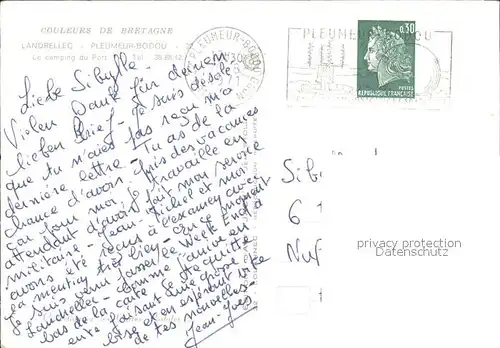 COULEURS DE BRETAGNE
LANDRELLEC - PLEUMEUR-BODOU
Le camping du Port Tél.
PLEUMEUR-BODOU
PLEUMEUR-BODOU
0,30
POSTES
REPUBLIQUE FRANÇAISE
Liebe Sibylle
Vielen Dank für deinen
lieben Brief - Je suis désolé
que tu n'aies pas reçu ma
dernière lettre - Tu as de la
chance d'avoir pris des vacances
Car pour moi je travaille en
attendant d'avoir fait mon service
militaire - Jean-Michel et moi
avons été reçus à l'examen avec
la mention très bien - En ce moment
je suis venu passer le Week End à
Landrellec - Comme j'arrive en
bas de la carte je te quitte
en te faisant une grosse
bise et en espérant vite
de tes nouvelles
Jean-Yves
Sib
6
Nuf
privacy protection
Datenschutz